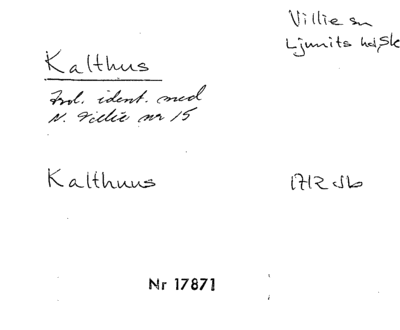 Villie sn
Ljunits hd, Sk
Kalthus
Trol. ident. med
N. Villie nr 15
Kalthuus
1712 Jb
Nr 17871